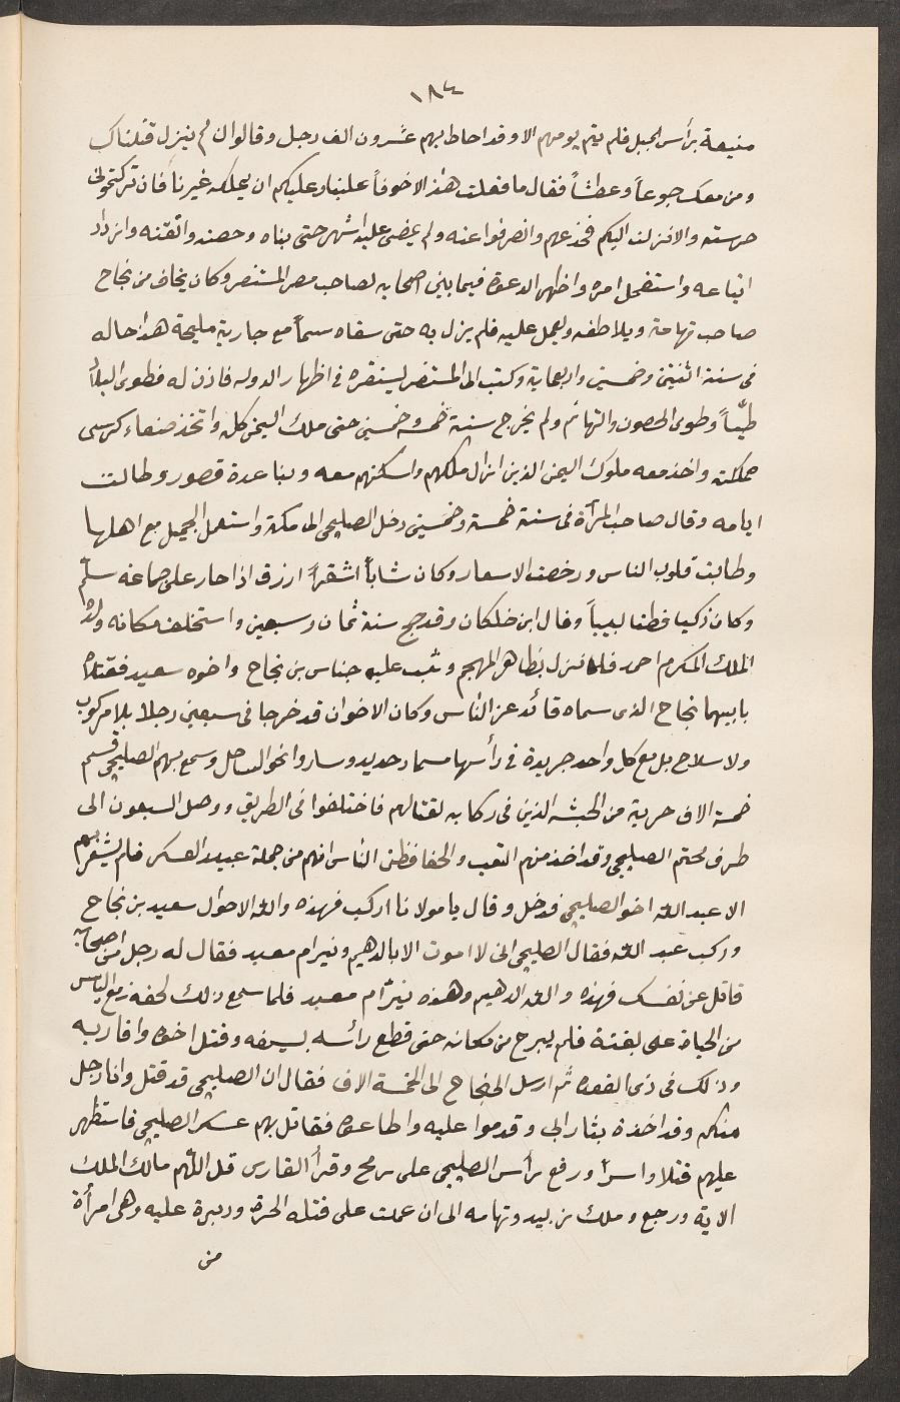 ١٨٤
منيعة برأس الجبل فلم يتم يومهم الا وقد احاط بهم عشرون الف رجل وقالوا ان لم ينزل قتلناك
ومن معك جوعاً وعطشاً فقال ما فعلت هذا الا خوفاً علينا وعليكم ان يملكه غيرنا فان تركتموني
حرسته والا نزلت اليكم فخدعهم وانصرفوا عنه ولم يمضى عليه اشهر حتى بناه وحصنه واتقنه وازداد
اتباعه واستفحل امره واظهر الدعوة فيما بينى اصحابه لصاحب مصر المستنصر وكان يخاف من نجاح
صاحب تهامة ويلاطفه ويعمل عليه فلم يزل به حتى سقاه سماً مع جارية مليحة هداها له
فى سنة اثنتين وخمسين واربعماية وكتب الى المستنصر ليستقره فى اظهار الدوله فاذن له فطوى البلاد
طيّاً وطوى الحصون والتهائم ولم يخرج سنة خمسة وخمسين حتى ملك اليمن كله واتخذ صنعاء كرسى
مملكته واخذ معه ملوك اليمن الذين ازال ملكهم واسكنهم معه وبنا عدة قصور وطالت
ايامه وقال صاحب المرآة فى سنة خمسة وخمسين دخل الصليحى الى مكة واستعمل الجميل مع اهلها
وطابت قلوب الناس ورخصت الاسعار وكان شاباً اشقراً ازرق اذا جاز على جماعه سلّم
وكان ذكيا فطنا لبيباً وقال ابن خلكان وقد حج سنة ثمان وسبعين واستخلف مكانه ولده
الملك المكرم احمد فلما نزل بظاهر المهجم وثب عليه جناس بن نجاح واخوه سعيد فقتلاه
بابيهما نجاح الذى سماه قائد عز الناس وكان الاخوان قد خرجا فى سبعين رجلا بلا مركوب
ولا سلاح بل مع كل واحد جريدة فى رأسها مسمار حديد وساروا نحو الساحل وسمع بهم الصليحى فسيم
خمسة الاف حرية من الحبشه الذين فى ركابه لقتالهم فاختلفوا فى الطريق ووصل السبعون الى
طرف مخيم الصليحى وقد اخذ منهم التعب والحفا فظن الناس انهم من جملة عبيد العسكر فلم يشعر بهم
الا عبد الله اخو الصليحى فدخل وقال يا مولانا اركب فهذه والله الاحول سعيد بن نجاح
وركب عبد الله فقال الصليحى انى لا اموت الا بالدهيم وبيرام معبد فقال له رجل من اصحابه
قاتل عن نفسك فهذه والله الدهيم وهذه بيرام معبد فلما سمع ذلك لحقه زمع الياس
من الحياة على بغتة فلم يبرح من مكانه حتى قطع رأسه بسيفه وقتل اخوه واقاربه
وذلك فى ذى القعده ثم ارسل الى نجاح الى الخمسة الاف فقال ان الصليحى قد قتل وانا رجل
منكم وقد اخذة بثار ابى وقدموا عليه واطاعوه فقاتل بهم عسكر الصليحى فاستظهر
عليهم قتلا واسراً ورفع رأس الصليحى على رمح وقرأ القارى قل اللهم مالك الملك
الاية ورجع وملك زبيد وتهامه الى ان عملت على قتله الحرة ودبرة عليه وهى امرأة
من